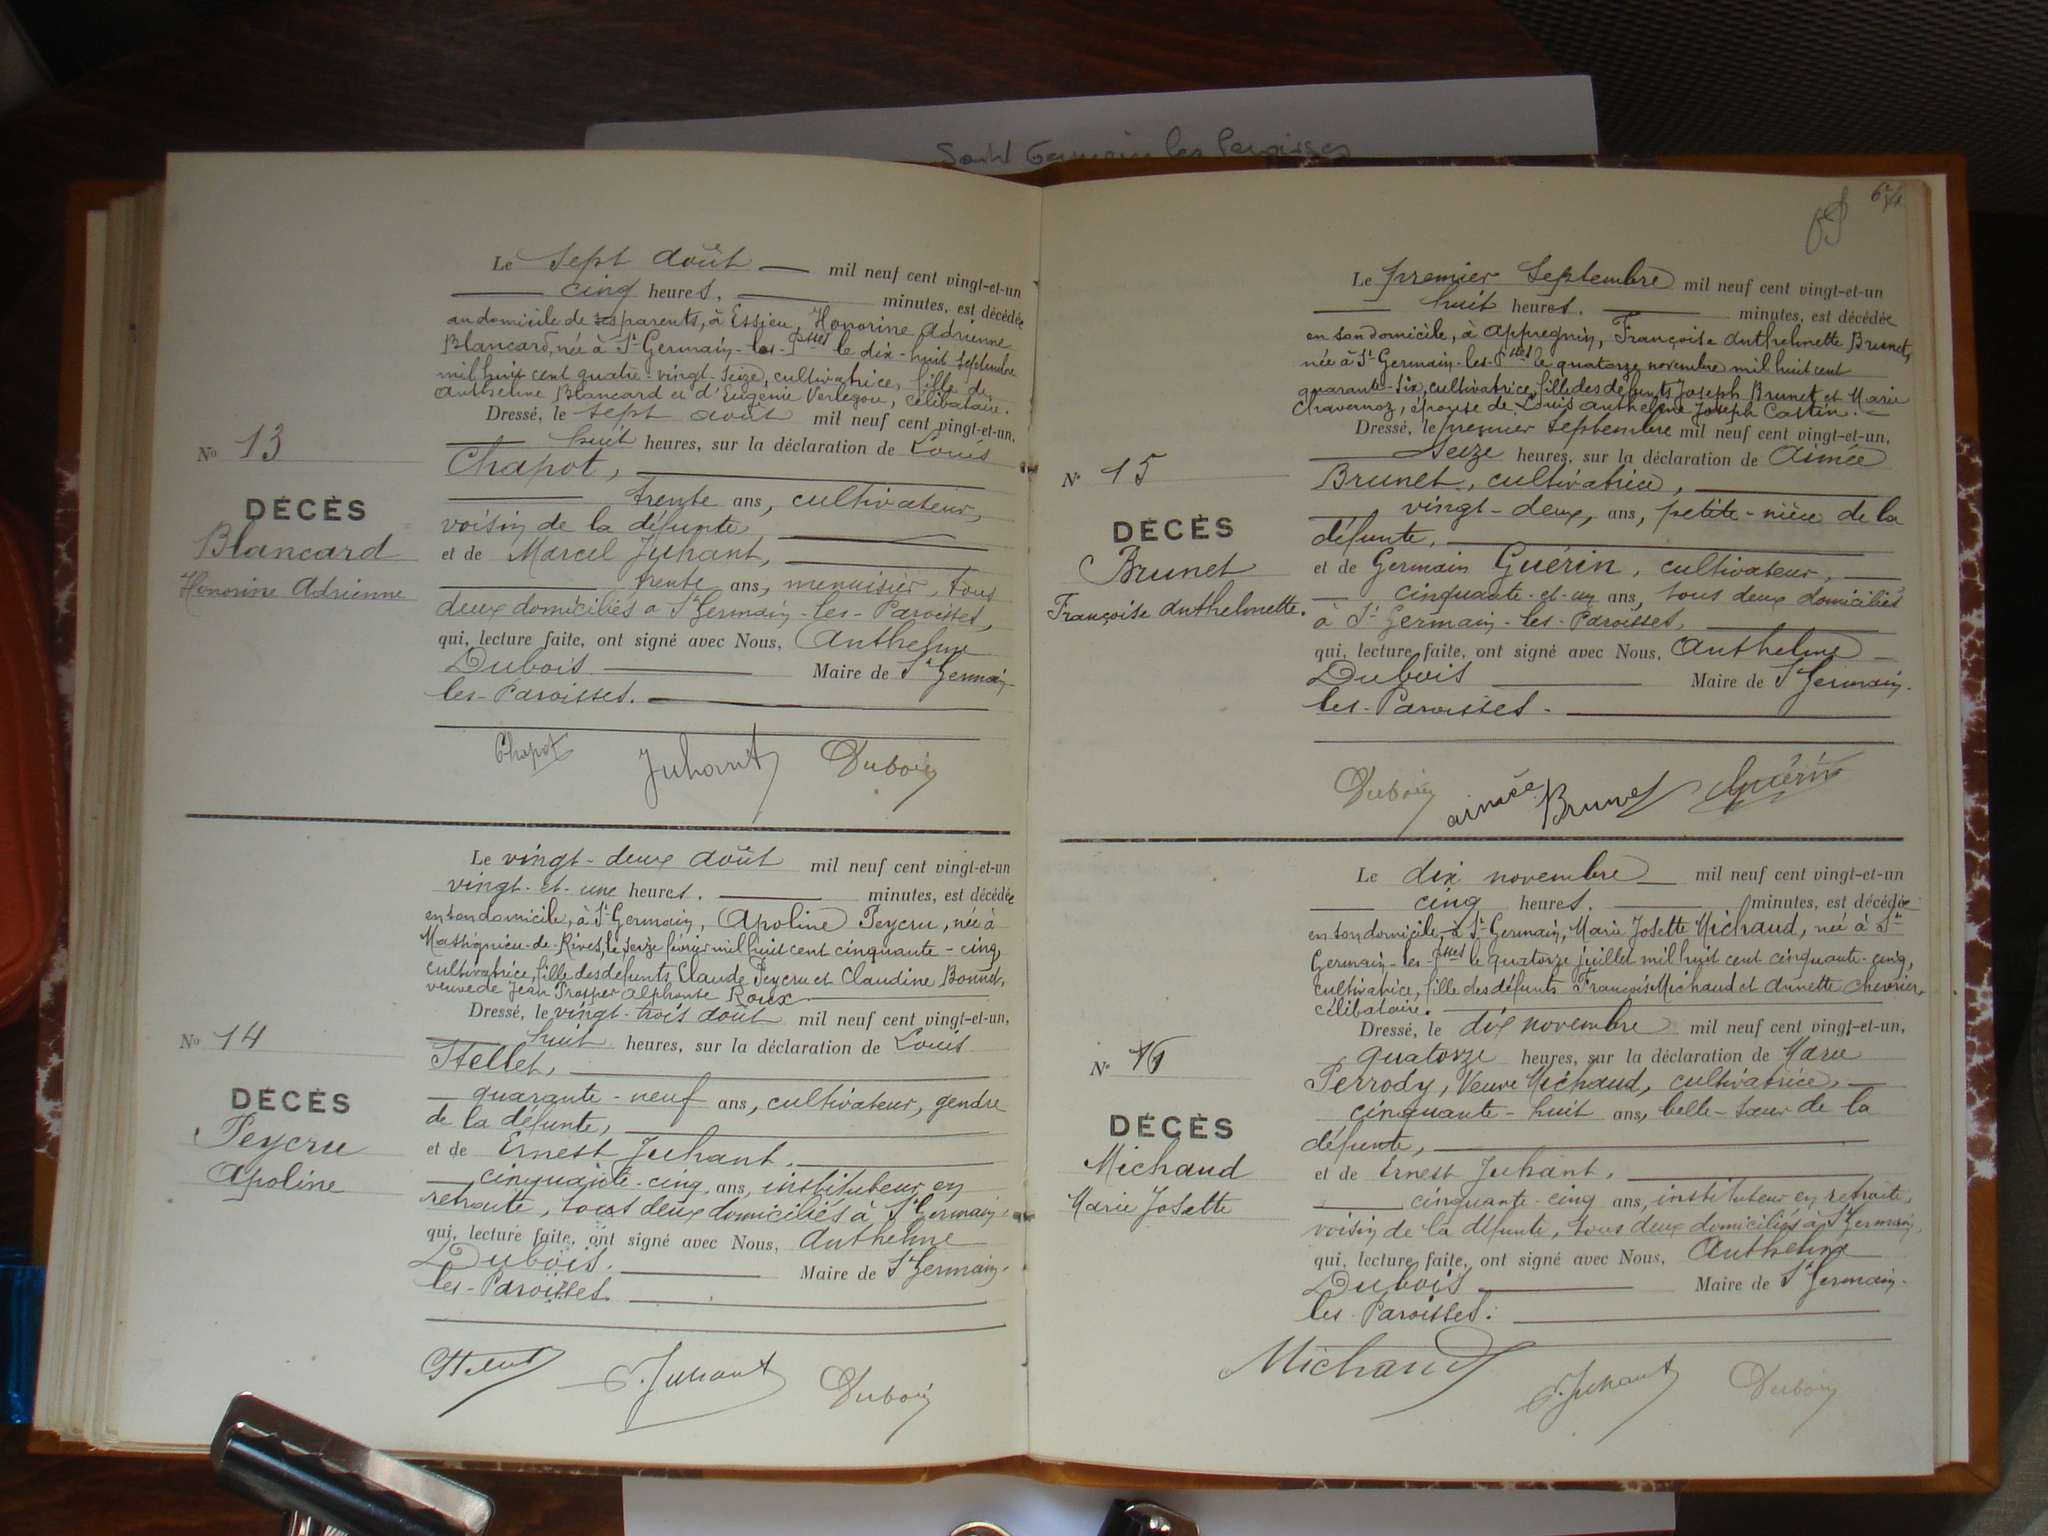 Saint Germain les Paroisses
Le sept août — mil neuf cent vingt-et-un
cinq heures, minutes, est décédée
au domicile de ses parents, à Essieu, Honorine Adrienne
Blancard, née à St Germain-les-Psses le dix-huit septembre
mil huit cent quatre-vingt-seize, cultivatrice, fille de
Anthelme Blancard et d'Eugénie Verlegou, célibataire.
Dressé, le sept août mil neuf cent vingt-et-un,
huit heures, sur la déclaration de Louis
Chapot,
trente ans, cultivateur,
voisin de la défunte
et de Marcel Juhant,
trente ans, menuisier, tous
deux domiciliés à St Germain-les-Paroisses,
qui, lecture faite, ont signé avec Nous, Anthelme
Dubois Maire de St Germain-
les-Paroisses.
No 13
DÉCÈS
Blancard
Honorine Adrienne
Chapot Juhant Dubois
Le vingt-deux août mil neuf cent vingt-et-un
vingt-et-une heures, minutes, est décédée
en son domicile, à St Germain, Apoline Peycru, née à
Massignieu-de-Rives, le seize février mil huit cent cinquante-cinq,
cultivatrice, fille des défunts Claude Peycru et Claudine Bonnet,
veuve de Jean Prosper Alphonse Roux
Dressé, le vingt-trois août mil neuf cent vingt-et-un,
huit heures, sur la déclaration de Louis
Stellet,
quarante-neuf ans, cultivateur, gendre
de la défunte,
et de Ernest Juhant.
cinquante-cinq ans, instituteur en
retraite, tous deux domiciliés à St Germain,
qui, lecture faite, ont signé avec Nous, Anthelme
Dubois. Maire de St Germain-
les-Paroisses
No 14
DÉCÈS
Peycru
Apoline
E. Juhant Dubois
Le premier septembre mil neuf cent vingt-et-un
huit heures. minutes, est décédée
en son domicile, à Appregnin, Françoise Anthelmette Brunet,
née à St Germain-les-Psses le quatorze novembre mil huit cent
quarante-six, cultivatrice, fille des défunts Joseph Brunet et Marie
Chavernoz, épouse de Louis Anthelme Joseph Castin.
Dressé, le premier septembre mil neuf cent vingt-et-un,
seize heures, sur la déclaration de Aimée
Brunet, cultivatrice,
vingt-deux, ans, petite-nièce de la
défunte,
et de Germain Guérin, cultivateur,
cinquante-et-un ans, tous deux domiciliés
à St Germain-les-Paroisses,
qui, lecture faite, ont signé avec Nous, Anthelme
Dubois Maire de St Germain-
les-Paroisses.
No 15
DÉCÈS
Brunet
Françoise Anthelmette.
Dubois aimée Brunet Guérin
Le dix novembre mil neuf cent vingt-et-un
cinq heures. minutes, est décédée
en son domicile, à St Germain, Marie Josette Michaud, née à St
Germain-les-Psses le quatorze juillet mil huit cent cinquante-cinq,
cultivatrice, fille des défunts François Michaud et Annette Chevrier,
célibataire.
Dressé, le dix novembre mil neuf cent vingt-et-un,
quatorze heures, sur la déclaration de Marie
Perrody, Veuve Michaud, cultivatrice,
cinquante-huit ans, belle-sœur de la
défunte,
et de Ernest Juhant,
cinquante-cinq ans, instituteur en retraite,
voisin de la défunte, tous deux domiciliés à St Germain,
qui, lecture faite, ont signé avec Nous, Anthelme
Dubois Maire de St Germain-
les-Paroisses.
No 16
DÉCÈS
Michaud
Marie Josette
Michaud E. Juhant Dubois